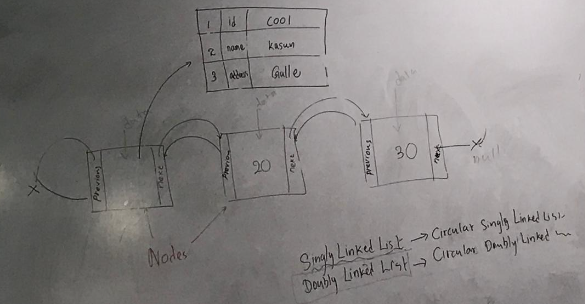 1 id C001
2 name Kasun
3 address Galle
data data data
previous next previous 20 next previous 30 next
null
Nodes
Singly Linked List → Circular Singly Linked List
Doubly Linked List → Circular Doubly Linked